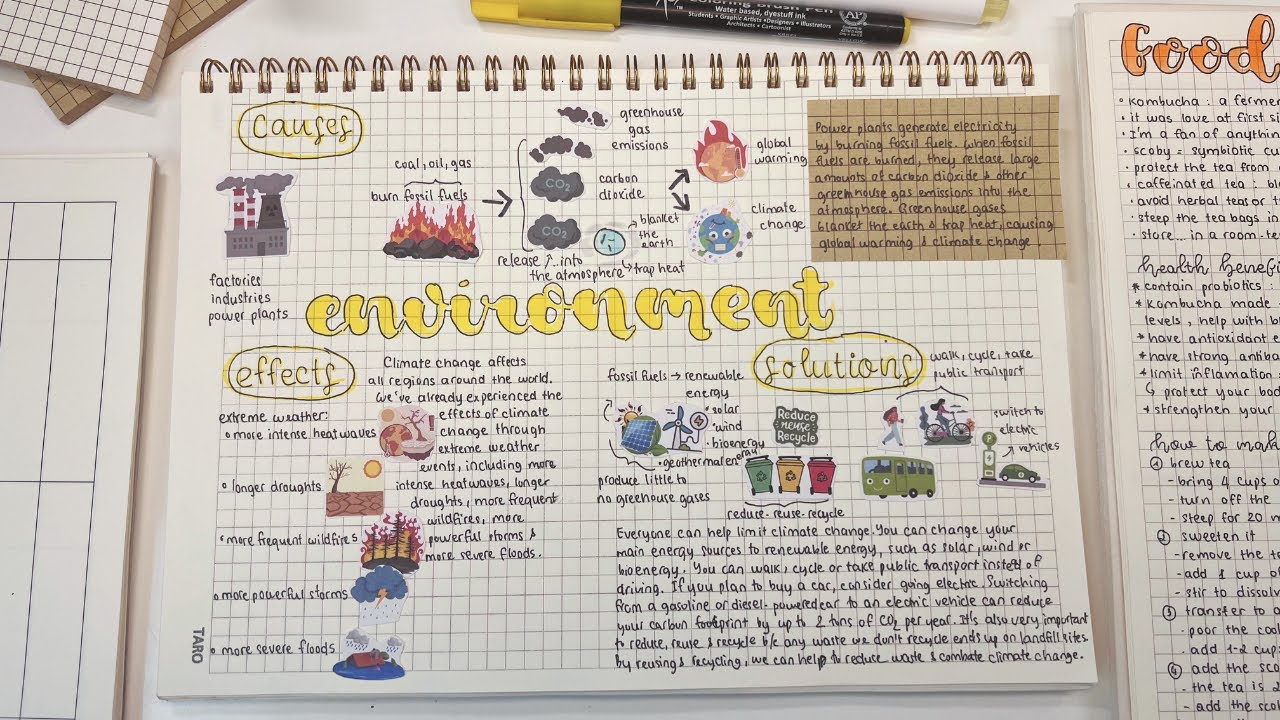 Coloring Brush Pen
Water based, dyestuff ink
Students · Graphic Artists · Designers · Illustrators
Architects · Cartoonist
AP
causes
factories
industries
power plants
coal, oil, gas
burn fossil fuels
greenhouse
gas
emissions
CO2
carbon
dioxide
CO2
release ↗..into
the atmosphere
blanket
the
earth
trap heat
global
warming
climate
change
Power plants generate electricity
by burning fossil fuels. When fossil
fuels are burned, they release large
amounts of carbon dioxide & other
greenhouse gas emissions into the
atmosphere. Greenhouse gases
blanket the earth & trap heat, causing
global warming & climate change.
environment
effects
Climate change affects
all regions around the world.
we've already experienced the
effects of climate
change through
extreme weather
events, including more
intense heatwaves, longer
droughts, more frequent
wildfires, more
powerful storms &
more severe floods.
extreme weather:
• more intense heatwaves
• longer droughts
• more frequent wildfires
• more powerful storms
• more severe floods
solutions
fossil fuels → renewable
energy
• solar
• wind
• bioenergy
• geothermal energy
produce little to
no greenhouse gases
Reduce
reuse
Recycle
reduce - reuse - recycle
walk, cycle, take
public transport
switch to
electric
vehicles
Everyone can help limit climate change. You can change your
main energy sources to renewable energy, such as solar, wind or
bioenergy. You can walk, cycle or take public transport instead of
driving. If you plan to buy a car, consider going electric. Switching
from a gasoline or diesel-powered car to an electric vehicle can reduce
your carbon footprint by up to 2 tons of CO2 per year. It's also very important
to reduce, reuse & recycle b/c any waste we don't recycle ends up on landfill sites.
by reusing & recycling, we can help to reduce waste & combate climate change.
TARO
Food
• kombucha : a ferme
• it was love at first si
• I'm a fan of anything
• scoby = symbiotic cu
• protect the tea from
• caffeinated tea : bl
• avoid herbal tea or t
• steep the tea bags in
• store... in a room-te
health benefi
* contain probiotics :
* kombucha made
levels, help with b
* have antioxidant e
* have strong antiba
* limit inflamation
↳ protect your bod
* strengthen your
how to mak
① brew tea
- bring 4 cups o
- turn off the
- steep for 20 m
② sweeten it
- remove the t
- add 1 cup of
- stir to dissolv
③ transfer to a
- poor the coo
- add 1-2 cups
④ add the sco
- the tea is
- add the scob